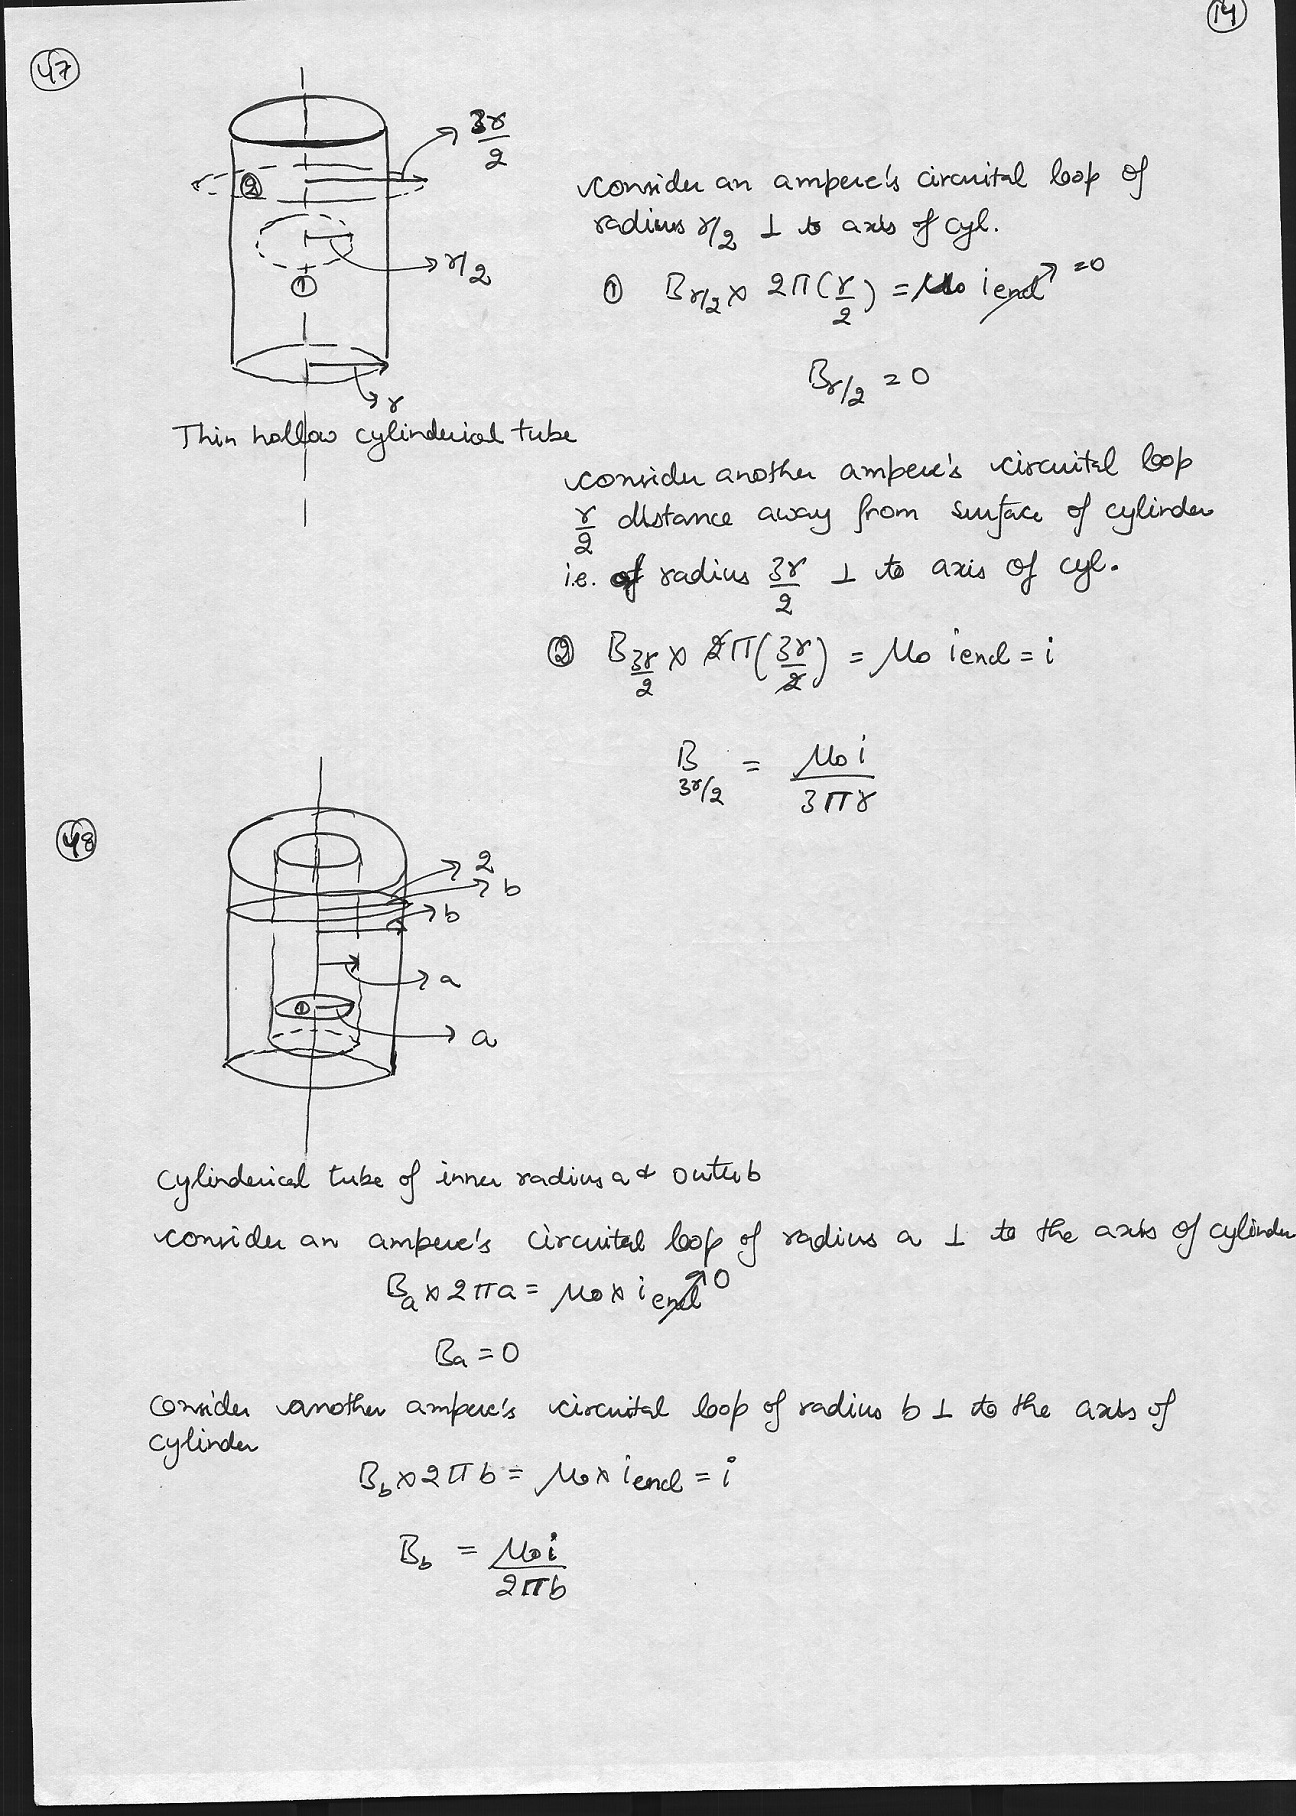 14
47
3r/2
2
r/2
1
r
Thin hollow cylinderical tube
consider an ampere's circuital loop of
radius r/2 ⊥ to axis of cyl.
① B r/2 × 2π(r/2) = μ₀ i encl = 0
B r/2 = 0
consider another ampere's circuital loop
r/2 distance away from surface of cylinder
i.e. of radius 3r/2 ⊥ to axis of cyl.
② B 3r/2 × 2π(3r/2) = μ₀ i encl = i
B 3r/2 = μ₀ i / 3πr
48
2
b
b
a
1
a
cylinderical tube of inner radius a & outer b
consider an ampere's circuital loop of radius a ⊥ to the axis of cylinder
Ba × 2πa = μ₀ × i encl 0
Ba = 0
consider another ampere's circuital loop of radius b ⊥ to the axis of
cylinder
Bb × 2πb = μ₀ × i encl = i
Bb = μ₀ i / 2πb